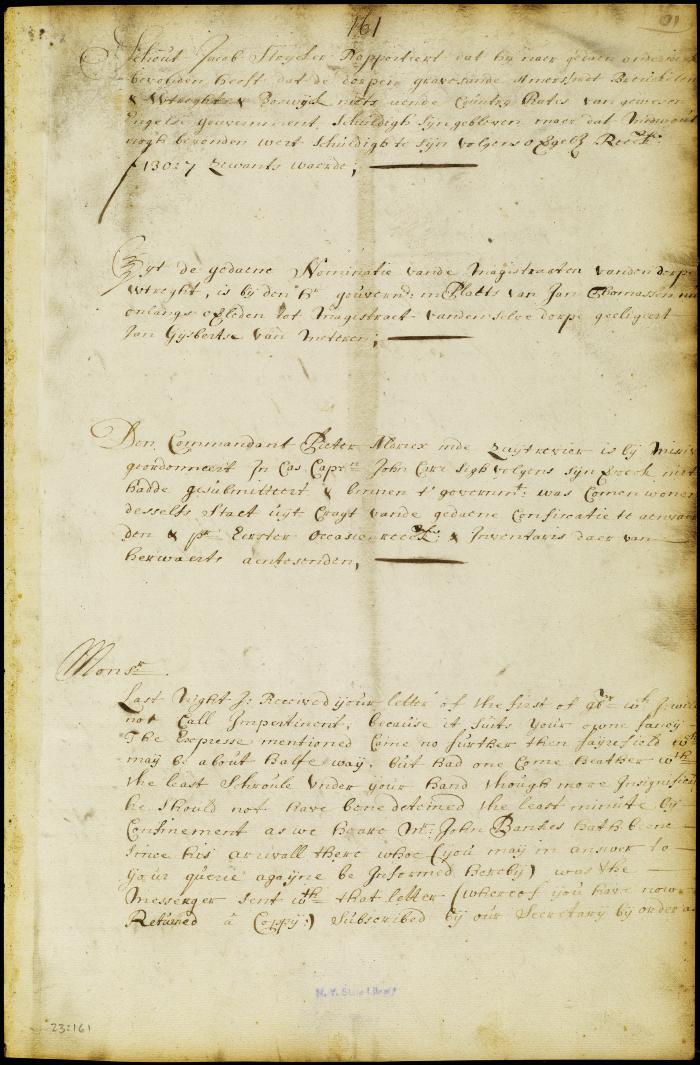 161
91
Schout Jacob Strycker Rapporteert dat hy naer gedaen
bevonden heeft dat de dorpen gravesande Amersfort Breuckelen
& Wtreght & Boswyck niets aende Country Rates van gewesen
Engelse gouvernment, Schuldigh syn gebleven maer dat Midwout
noch bevonden wert schuldigh te syn volgens
ƒ130:7 Zewants waerde;
Uyt de gedaene Nominatie vande Magistraaten van den dorpe
Wtreght, is by den hr gouvernr: in Plaets van Jan Thomassen nu
onlangs overleden tot Magistraet vanden selve dorpe geeligeert
Jan Gysbertse van Meteren;
Den Commandant Pieter Alricx inde Zuytrevier is by Missive
geordonneert In Cas Captn John Carr sigh volgens syn niet
hadde gesubmitteert & binnen t' governmt: was Comen woonen
desselfs Staet uyt Cragt vande gedaene Confiscatie te aenvaer
den & pr Eerster Occasie & Inventaris daer van
herwaerts aentesenden,
Monsr
Last Night I: Received your letter of the first of 9br wh I: will
not Call Impertinent, because it suts your owne fancy
The Expresse mentioned Came no further then fayrefield wch
may be about halfe way, but had one Come heather wth
the least Schroule under your hand though more Insignificant
he should not have bene deteined the least minute by
Confinement as we heare Mr: John Bankes hath bene
since his arrivall there whoe (you may in answer to
your querie agayne be Informed hereby) was the
Messerger sent wth that letter (whereof you have nowe
Returned a Coppy:) Subscribed by our Secretary by order
N. Y. State Library
23:161